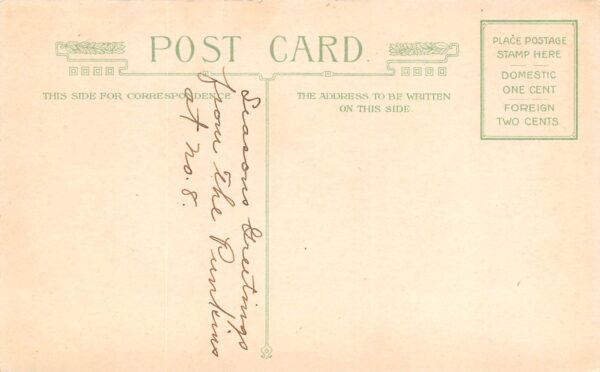 POST CARD
THIS SIDE FOR CORRESPONDENCE
THE ADDRESS TO BE WRITTEN
ON THIS SIDE.
PLACE POSTAGE
STAMP HERE
DOMESTIC
ONE CENT
FOREIGN
TWO CENTS
Seasons Greetings
from the Punkins
at no. 8.